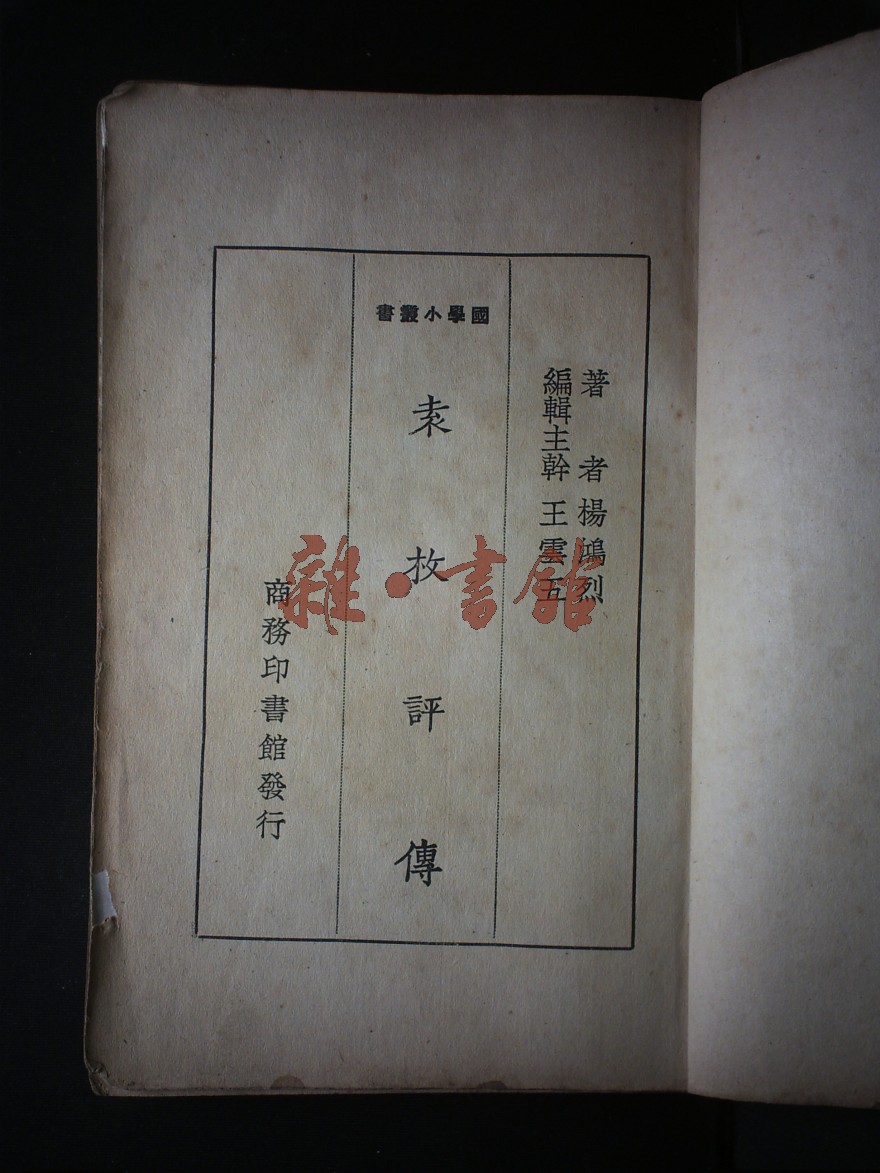 著者楊鴻烈
編輯主幹王雲五
國學小叢書
袁枚評傳
商務印書館發行
雜·書館